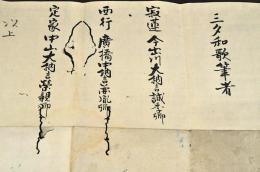 三夕和歌筆者
寂蓮 今出川大納言誠季卿
西行 廣橋中納言兼胤卿
定家 中山大納言栄親卿
以上